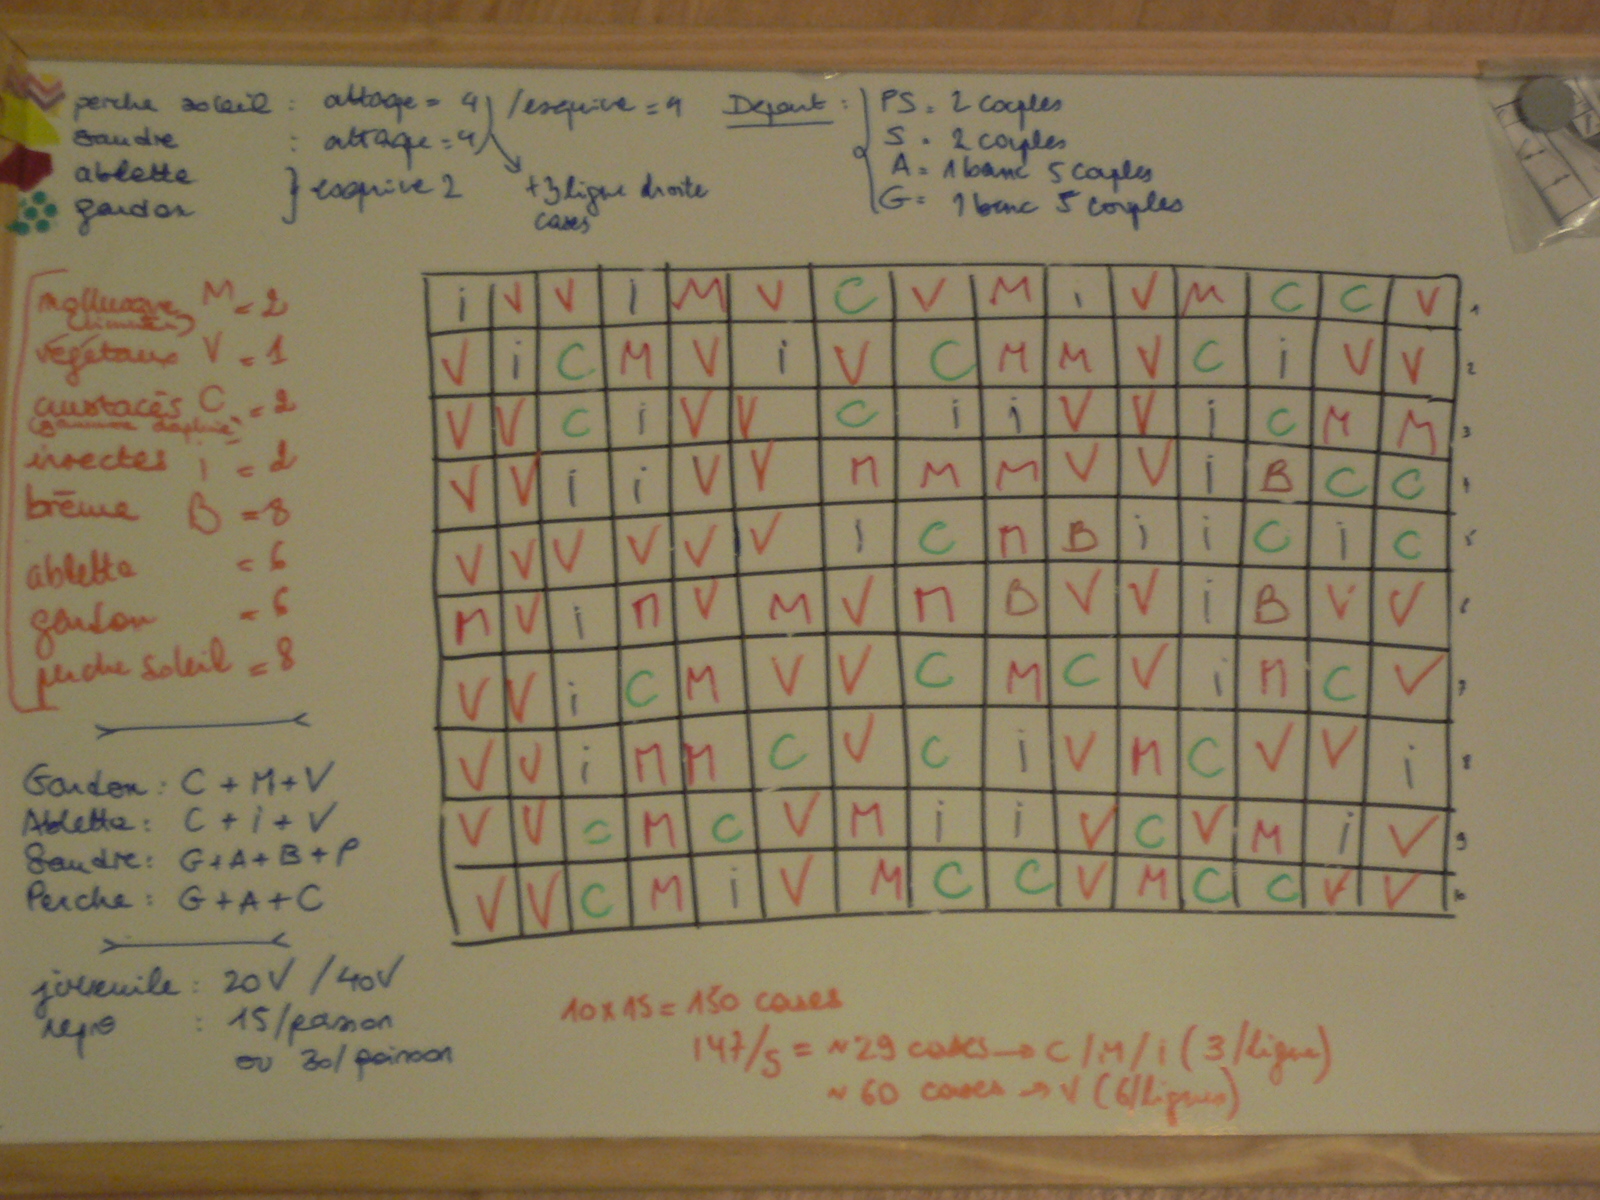 perche soleil : attaque = 4 / esquive = 4
sandre : attaque = 4
ablette
gardon } esquive 2
+3 ligne droite
cases
Depart : { PS = 2 couples
S = 2 couples
A = 1 banc 5 couples
G = 1 banc 5 couples
mollusque M = 2
végétaux V = 1
crustacés C = 2
insectes i = 2
brème B = 8
ablette = 6
gardon = 6
perche soleil = 8
Gardon : C + M + V
Ablette : C + i + V
Sandre : G + A + B + P
Perche : G + A + C
juvenile : 20V / 40V
repro : 15/poisson
ou 30/poisson
i V V i M V C V M i V M C C V 1
V i C M V i V C M M V C i V V 2
V V C i V V C i i V V i C M M 3
V V i i V V M M M V V i B C C 4
V V V V V V i C M B i i C i C 5
M V i M V M V M B V V i B V V 6
V V i C M V V C M C V i M C V 7
V V i M M C V C i V M C V V i 8
V V C M C V M i i V C V M i V 9
V V C M i V M C C V M C C V V 10
10x15 = 150 cases
147/5 = ~29 cases → C / M / i (3/ligne)
~60 cases → V (6/lignes)